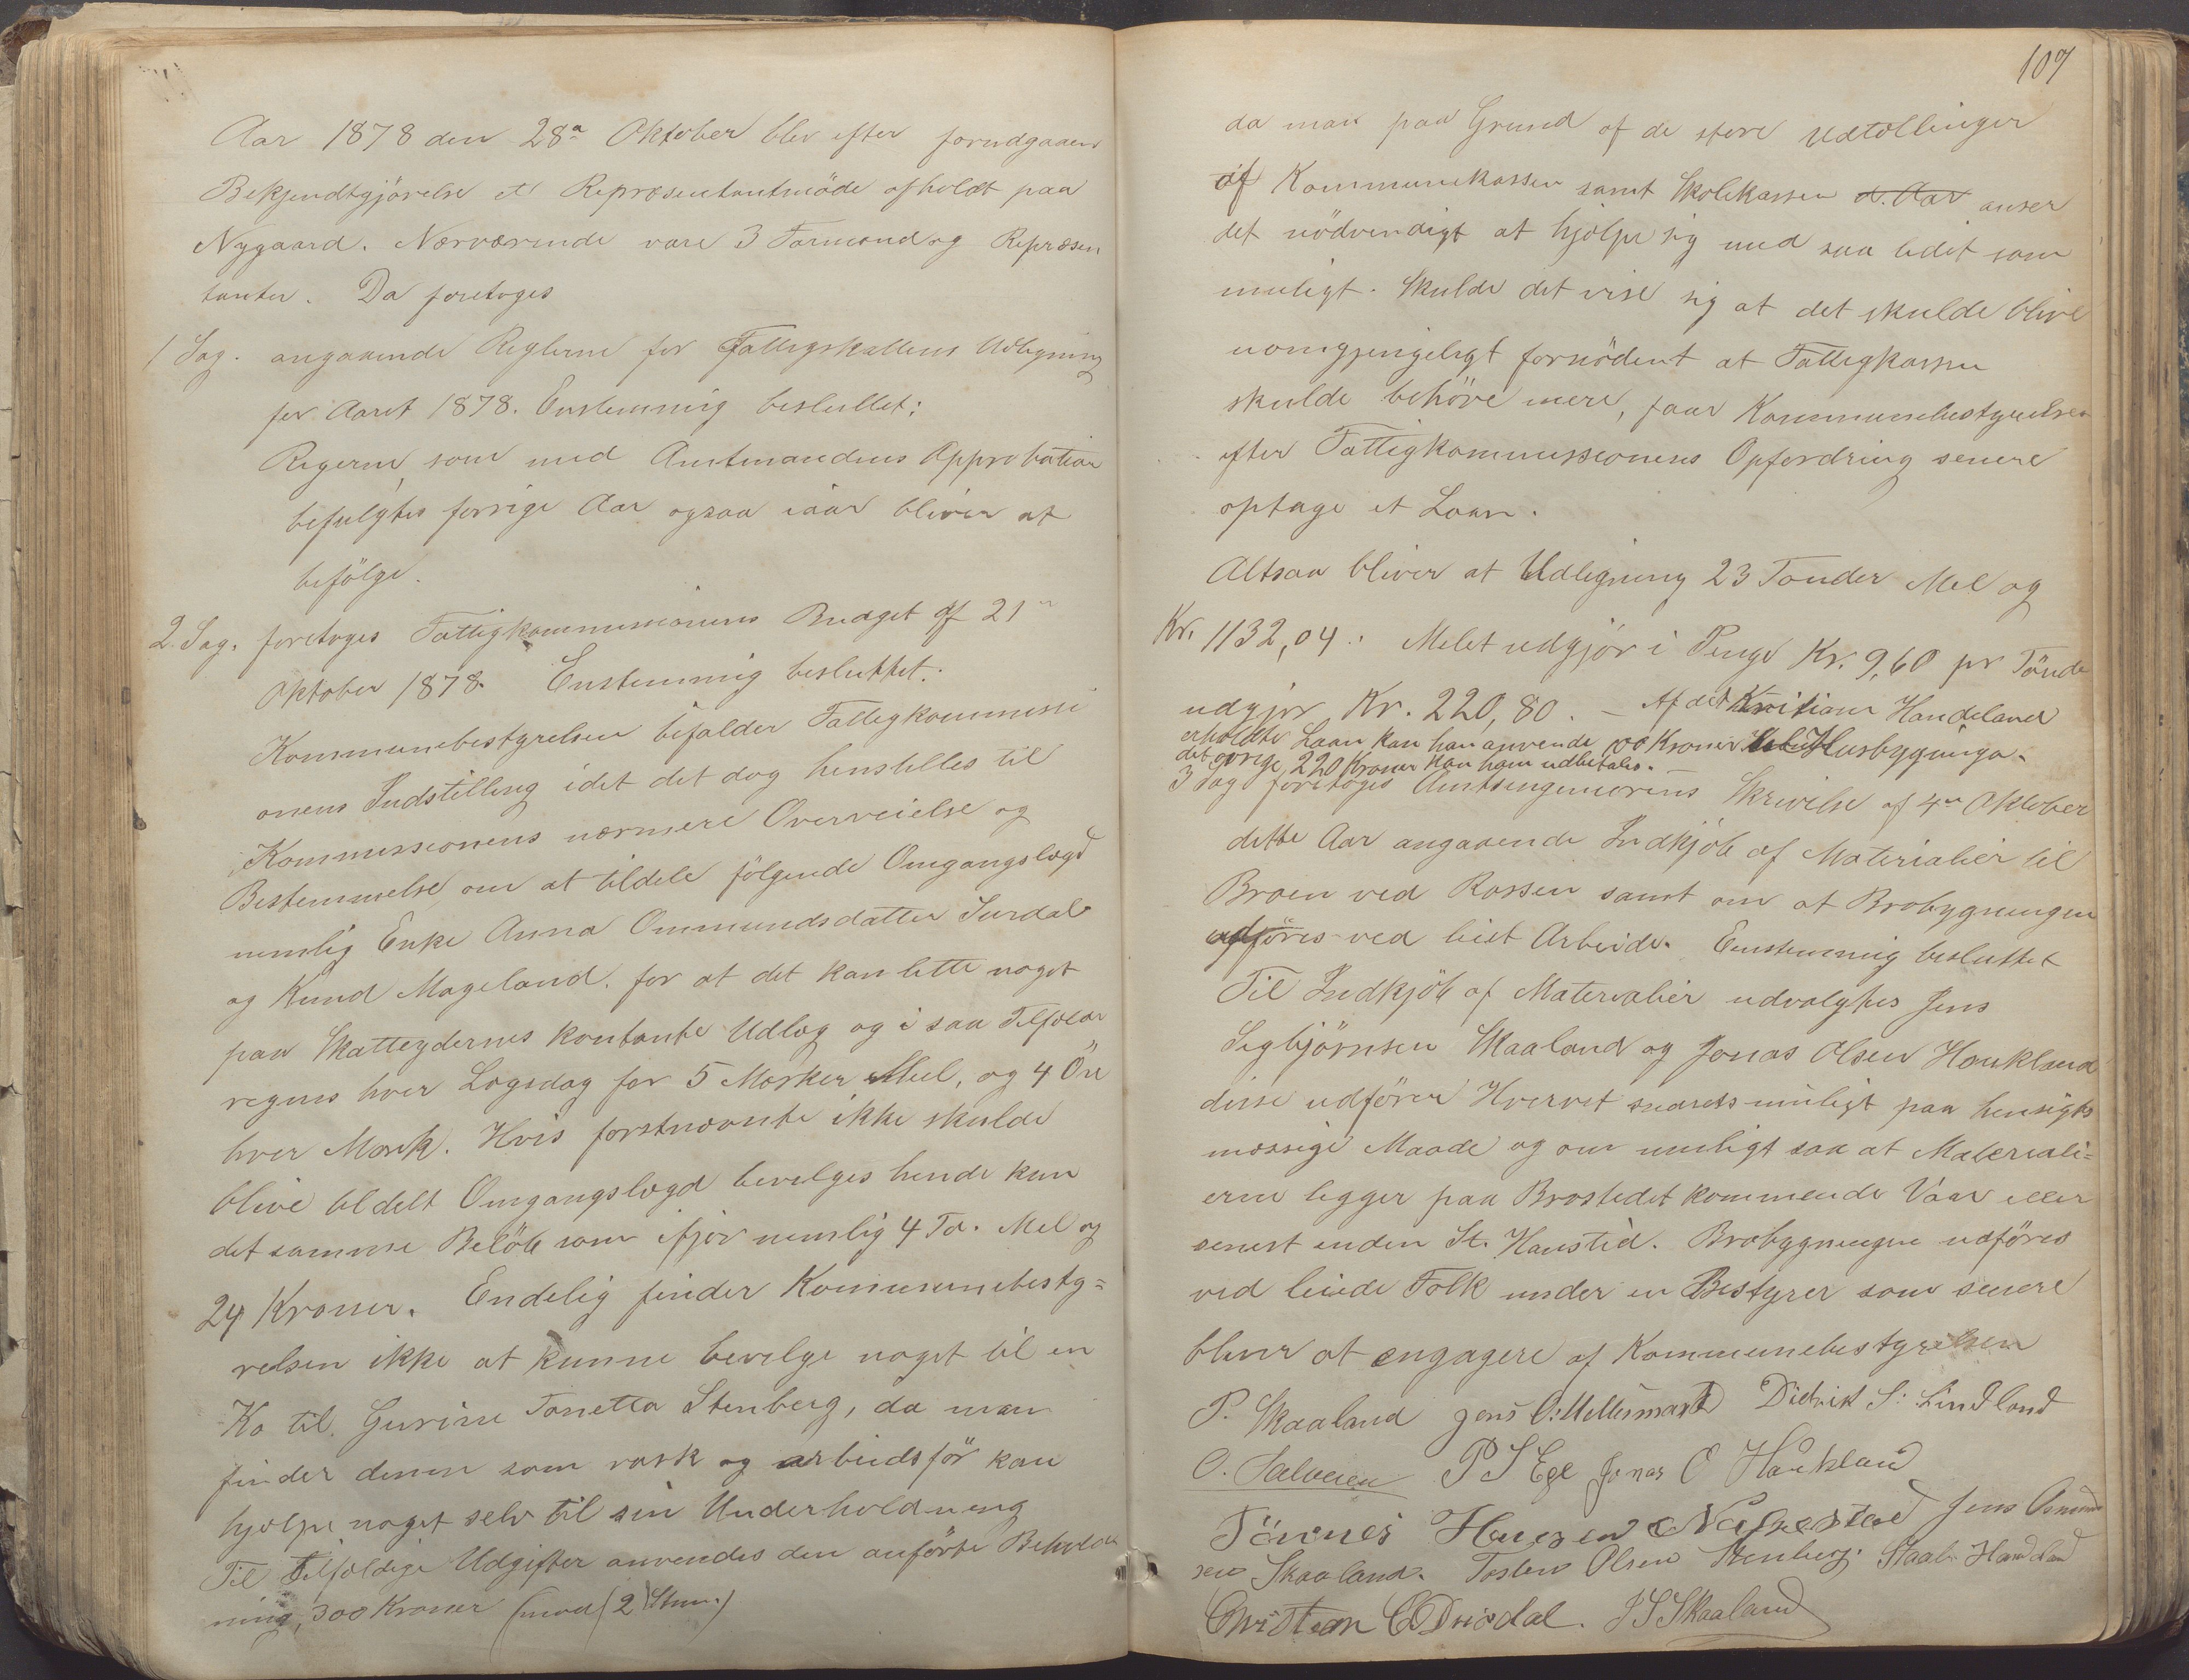 Aar 1878 den 28n Oktober blev efter forudgaaende
Bekjendtgjörelse et Repræsentantmöde afholdt paa
Nygaard. Nærværende vare 3 Formænd og Repræsen
tanter. Da foretoges
1 Sag. angaaende Reglerne for Fattigskattens Udligning
for Aaret 1878. Enstemmig besluttet:
Regerne som med Amtmandens Approbation
befulgtes forrige Aar ogsaa iaar bliver at
befölge.
2. Sag. foretoges Fattigkommisionens Budget af 21n
Oktober 1878. Enstemmig besluttet:
Kommunebestyrelsen bifalder Fattigkommissi
onens Indstilling idet det dog henstilles til
Kommissionens nærmere Overveielse og
Bestemmelse om at tildele fölgende Omgangslægd
nemlig Enke Anna Ommundsdatter Surdal
og Knud Mageland. for at det kan lette noget
paa Skatteydernes kontante Udlæg og i saa Tilfælde
regnes hver Lægsdag for 5 Marker Meel, og 4 Öre
hver Mark. Hvis førstnævnte ikke skulde
blive tildelt Omgangslægd bevilges hende kun
det samme Belöb som ifjor nemlig 4 Td. Mel og
24 Kroner. Endelig finder Kommunebesty=
relsen ikke at kunne bevilge noget til en
Ko til Gurine Tonetta Stenberg, da man
finder denne som rask og arbeidsför kan
hjælpe noget selv til sin Underholdning
Til Tilfældige Udgifter anvendes den anförte Behold
ning, 300 Kroner (mod 2 Stm.)
107
da man paa Grund af de store Udtællinger
af Kommunekassen samt Skolekassen d. Aar anser
det nödvendigt at hjælpe sig med saa lidet som
muligt. Skulde det vise sig at det skulde blive
uomgjengeligt fornödent at Fattigkassen
skulde behöve mere, faar Kommunebestyrelsen
efter Fattigkommissionens Opfordring senere
optage et Laan.
Altsaa bliver at Udligning 23 Tönder Mel og
Kr. 1132,04. Melet udgjör i Penge Kr. 9,60 pr Tönde
udgjør Kr. 220,80. — Af det Kristian Handeland
erholdte Laan kan han anvende 100 Kroner til Husbygninga.
det øvrige, 220 Kroner kan ham udbetales.
3 Sag foretoges Amtsingeniørens Skrivelse af 4n Oktober
dette Aar angaaende Indkjöb af Materialier til
Broen ved Rossen samt om at Brobygningen
udföres ved leiet Arbeide. Enstemmig besluttet
Til Indkjöb af Materialier udvalgtes Jens
Sigbjörnsen Skaaland og Jonas Olsen Haukland
disse udförer Hvervet snarest muligt paa hensigts
mæssige Maade og om muligt saa at Materiali=
erne ligger paa Brostedet kommende Vaar eller
senest inden St. Hanstid. Brobygningen udföres
ved leiede Folk under en Bestyrer som senere
bliver at engagere af Kommunebestyrelsen
P. Skaaland Jens O: Mellesmand Didrik S: Lindland
O. Salvesen P S Ege Jonas O Haukland
Tönnes Hansen Nalvestad Jens Osmund
sen Skaaland. Tosten Olsen Stenberg. Staale Handeland
Christean C Drivdal. J S Skaaland